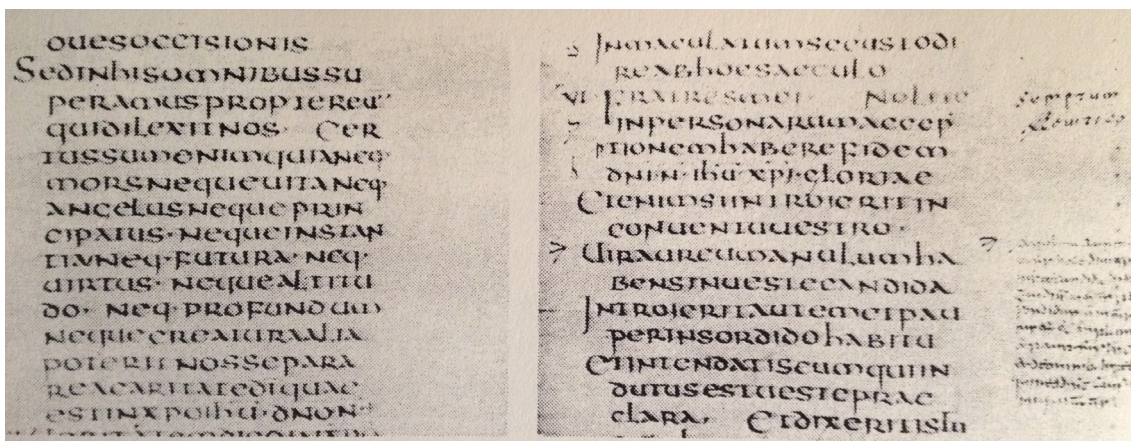 ouesoccisionis
Sedinhisomnibussu
peramusproptereū
quidilexitnos· Cer
tussumenimquianeq·
morsnequeuitaneq·
angelusnequeprin
cipatus·nequeinstan
tianeq·futura·neq·
uirtus·nequealtitu
do·neq·profundum
nequecreaturaalia
poteritnossepara
reacaritatediquae
estinxpoihu·dnon·
Inmaculatumsecustodi
reabhocsaeculo
VI Fratresmei Nolite
inpersonarumaccep
tionemhaberefidem
dnin·ihū·xpi·gloriae
Etenimsiintroieritin
conuentuuestro·
Uiraureumanulumha
bensinuestecandida
Introieritautemetpau
perinsordidohabitu
Etintendatiseumquiin
dutusestuesteprae
clara· Etdixeritis